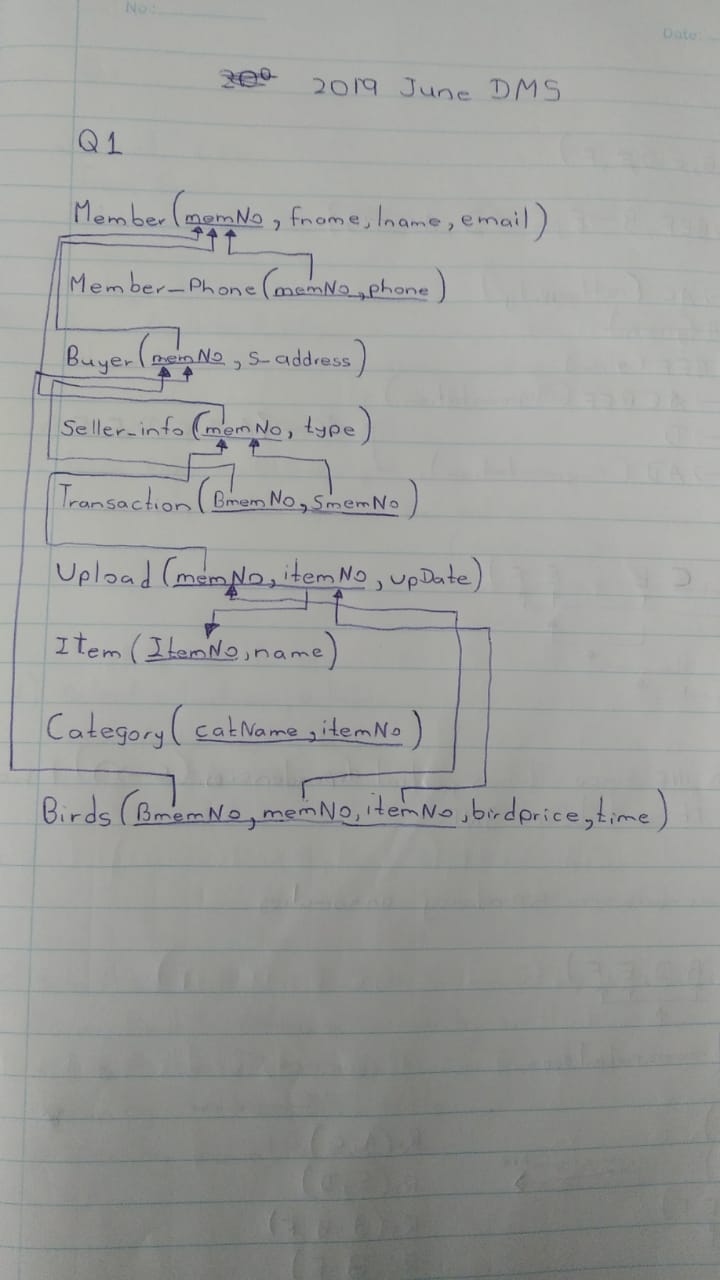 No:
Date:
2019 June DMS
Q1
Member (memNo, fname, lname, email)
Member_Phone (memNo, phone)
Buyer (memNo, S_address)
Seller_info (memNo, type)
Transaction (BmemNo, SmemNo)
Upload (memNo, itemNo, upDate)
Item (ItemNo, name)
Category (catName, itemNo)
Birds (BmemNo, memNo, itemNo, birdprice, time)